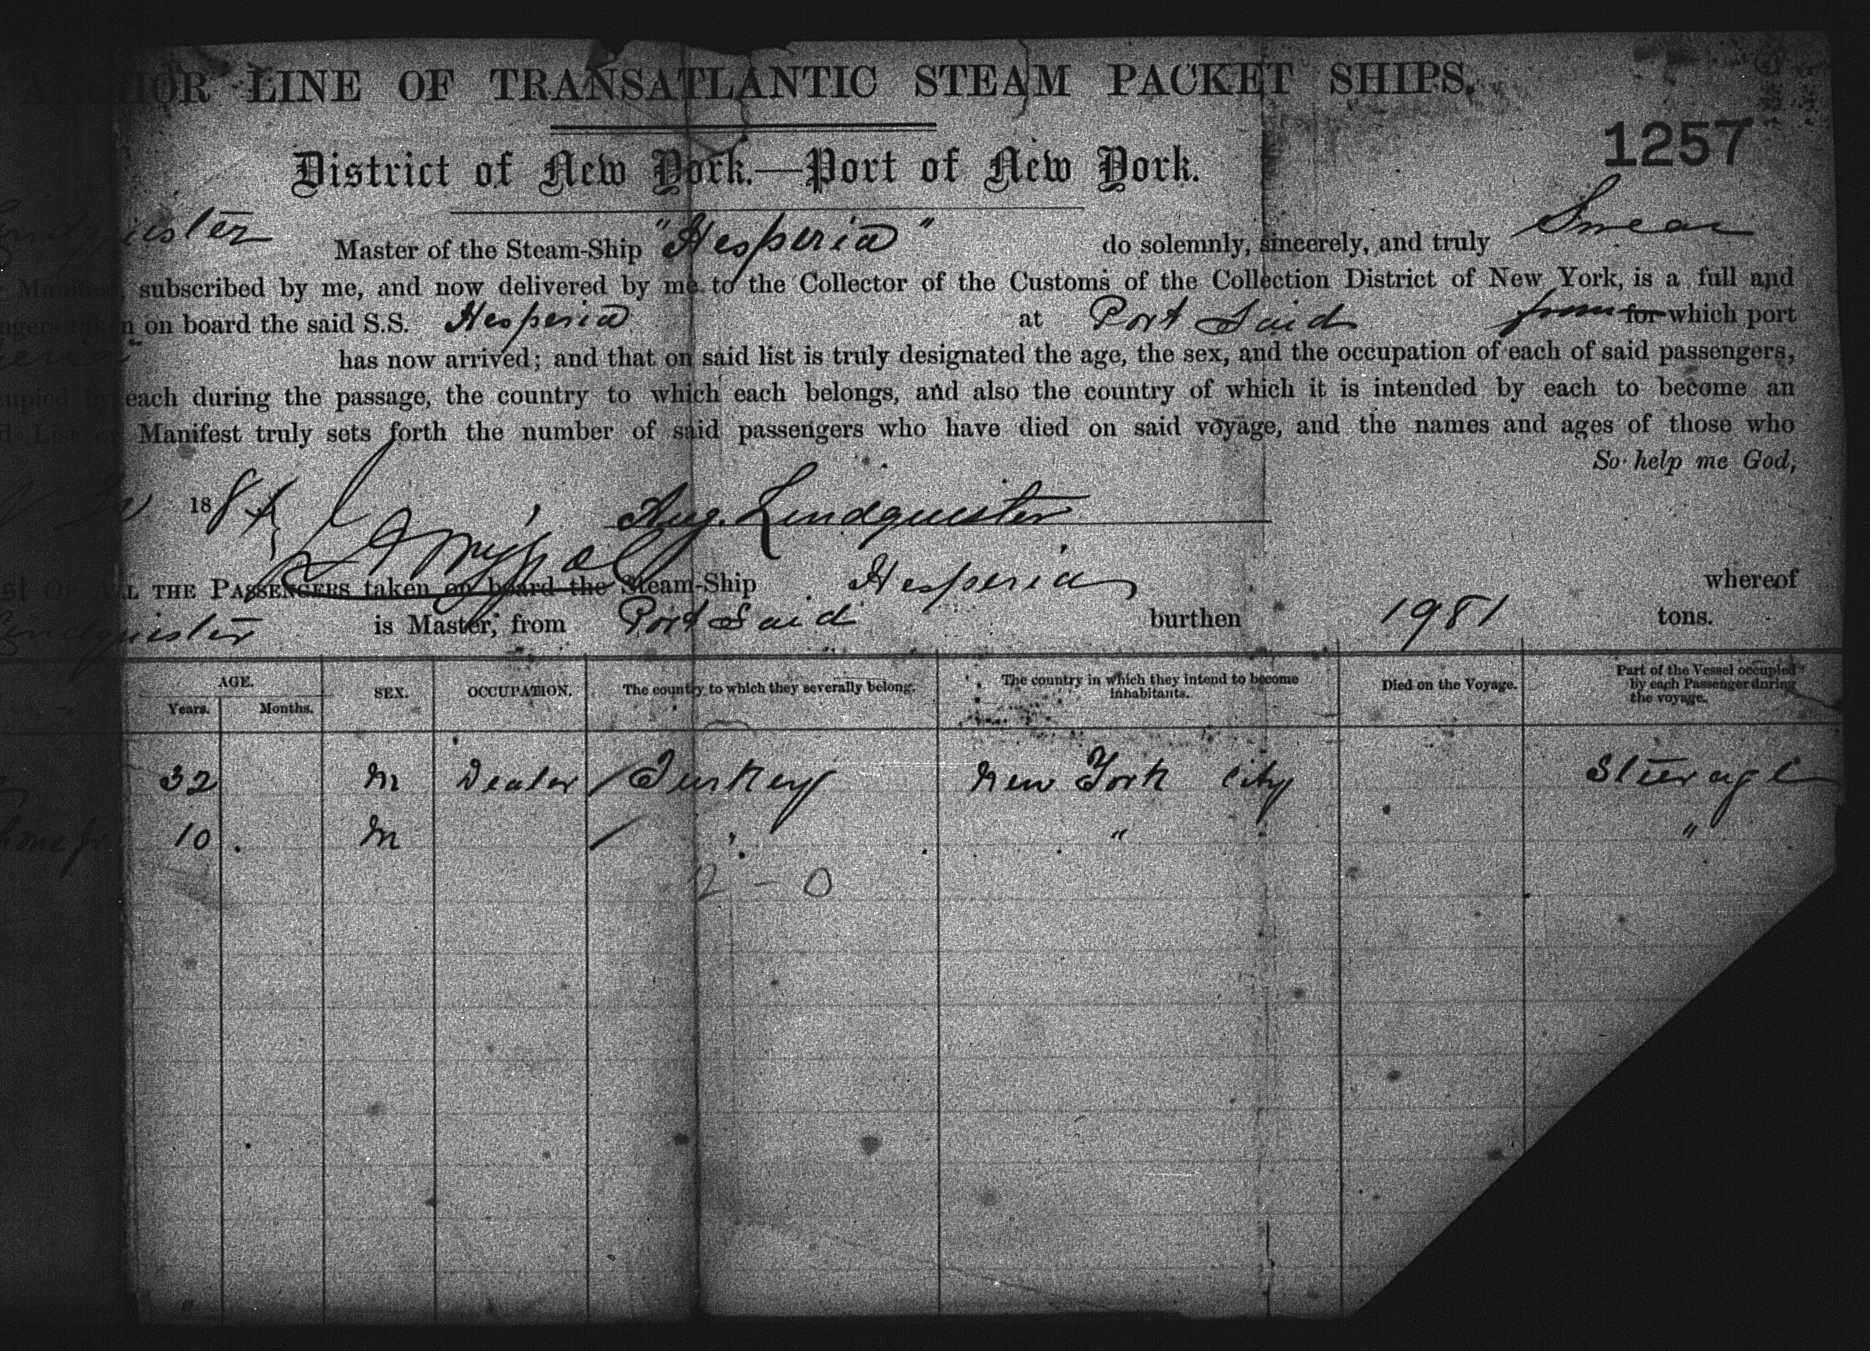 ANCHOR LINE OF TRANSATLANTIC STEAM PACKET SHIPS.
1257
District of New York.—Port of New York.
Lindquister Master of the Steam-Ship "Hesperia" do solemnly, sincerely, and truly Swear
Manifest, subscribed by me, and now delivered by me to the Collector of the Customs of the Collection District of New York, is a full and
taken on board the said S.S. Hesperia at Port Said from for which port
has now arrived; and that on said list is truly designated the age, the sex, and the occupation of each of said passengers,
by each during the passage, the country to which each belongs, and also the country of which it is intended by each to become an
List or Manifest truly sets forth the number of said passengers who have died on said voyage, and the names and ages of those who
So help me God,
188 Aug. Lindquister
OF ALL THE PASSENGERS taken on board the Steam-Ship Hesperia whereof
Lindquister is Master, from Port Said burthen 1981 tons.
AGE. SEX. OCCUPATION. The country to which they severally belong. The country in which they intend to become inhabitants. Died on the Voyage. Part of the Vessel occupied by each Passenger during the voyage.
Years. Months.
32 M Dealer / Turkey New York City Steerage
10 M / " " "
2 - 0